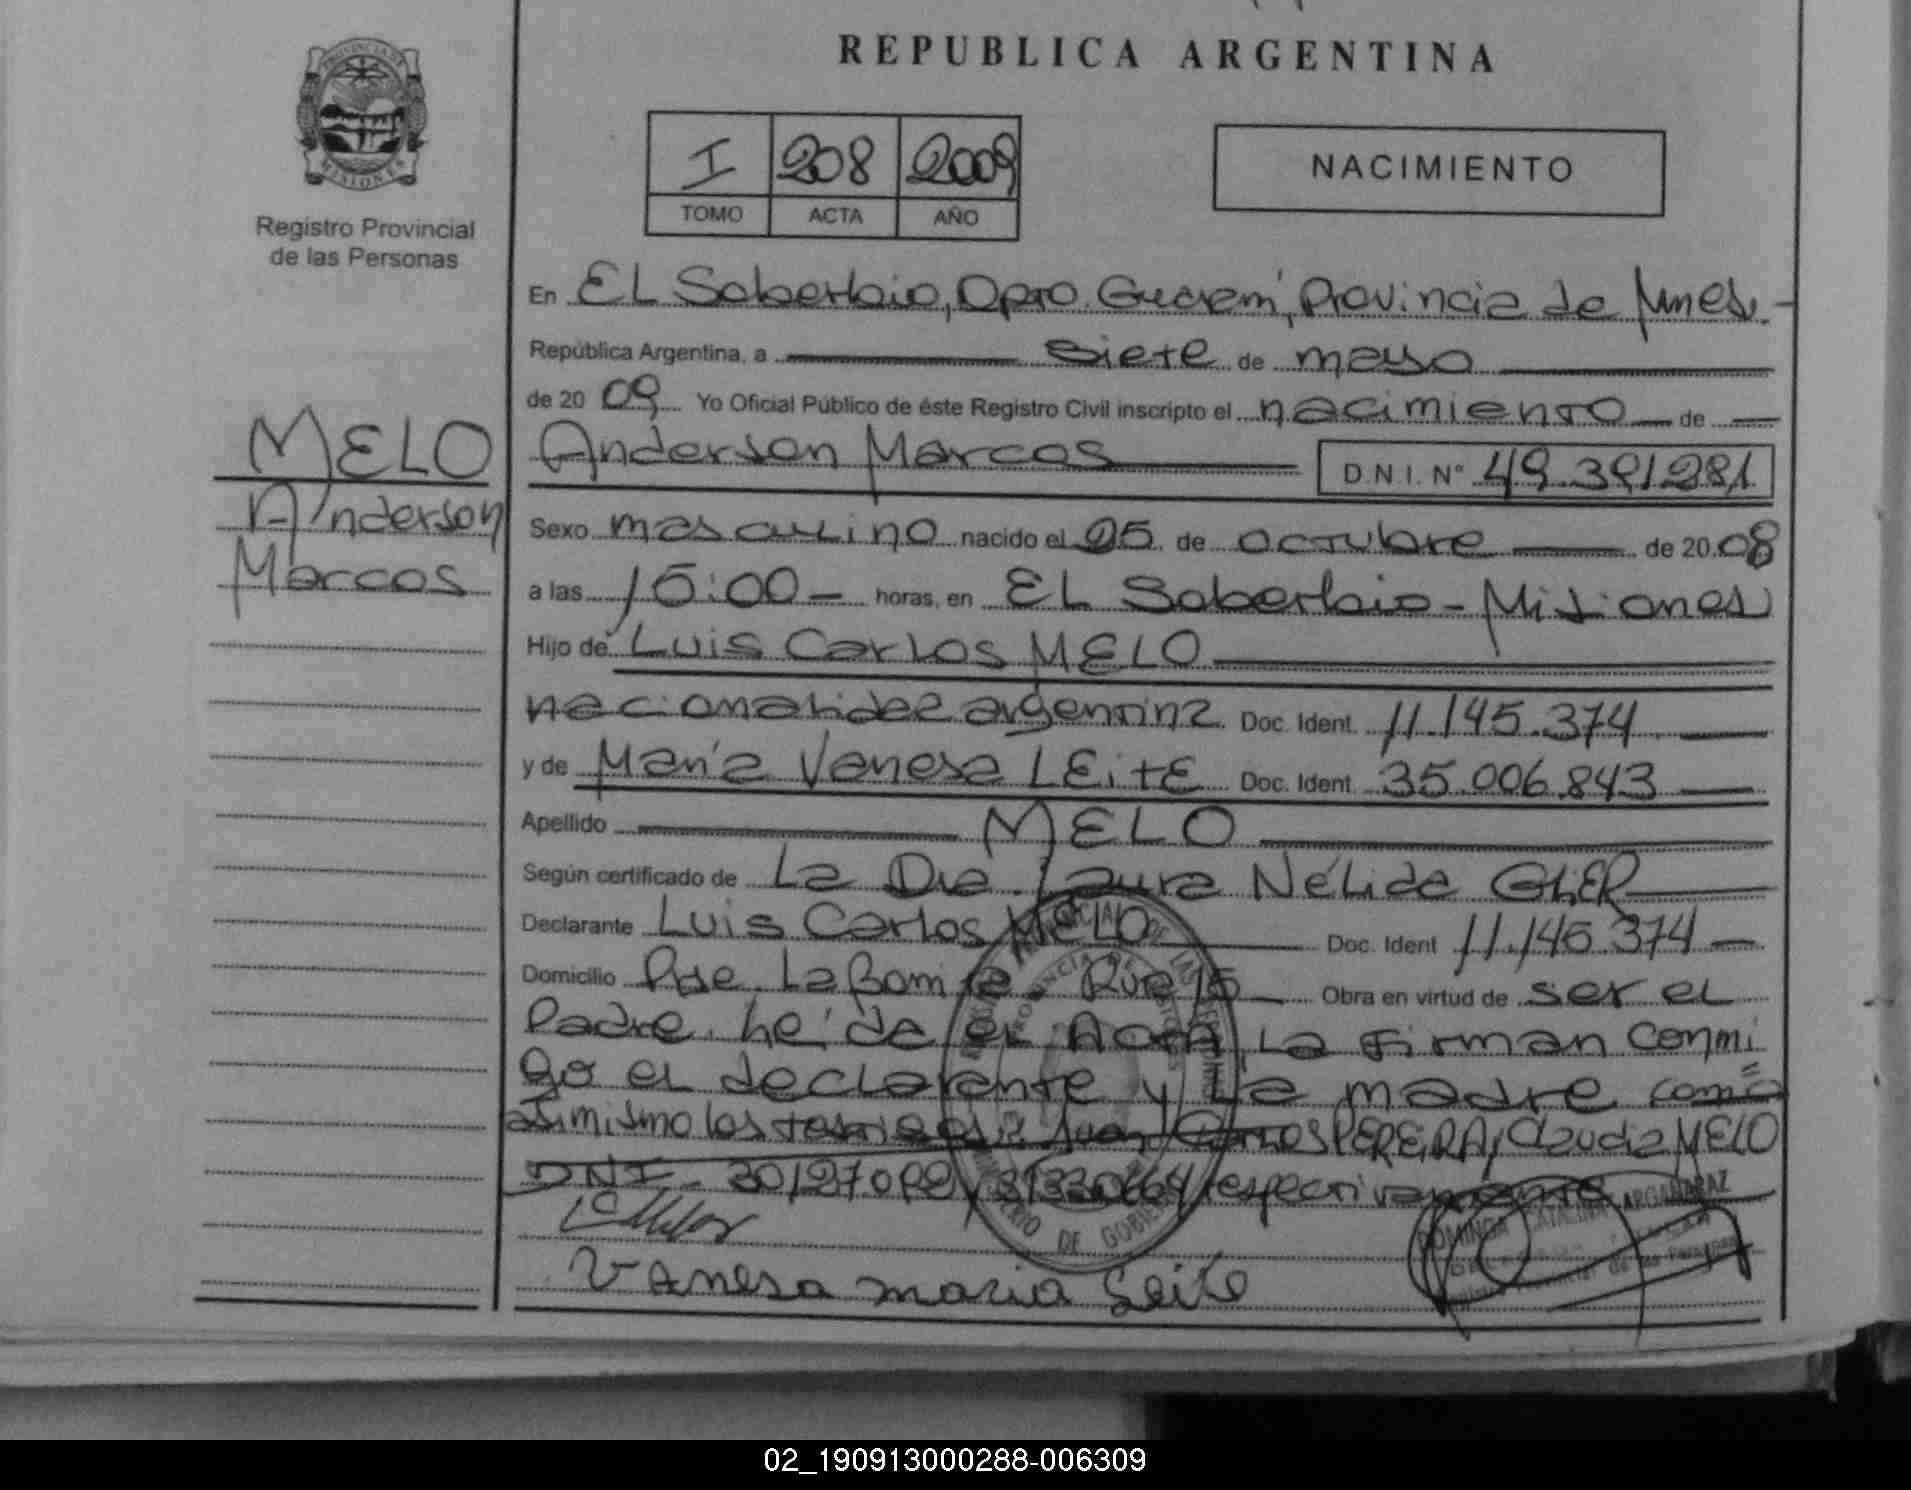 REPUBLICA ARGENTINA
PROVINCIA DE MISIONES
Registro Provincial
de las Personas
I 208 2009
TOMO ACTA AÑO
NACIMIENTO
En EL Soberbio, Dpto. Guaraní, Provincia de Mnes.-
República Argentina, a siete de mayo
de 20 09 Yo Oficial Público de éste Registro Civil inscripto el nacimiento de
MELO
Anderson
Marcos
Anderson Marcos D.N.I. N° 49.391281
Sexo masculino nacido el 05 de octubre de 20 08
a las 15:00- horas, en EL Soberbio - Misiones
Hijo de Luis Carlos MELO
nacionalidad argentina Doc. Ident. 11.145.374
y de María Vanesa LEitE Doc. Ident. 35.006.843
Apellido MELO
Según certificado de La Dra. Laura Nélida
Declarante Luis Carlos MELO Doc. Ident 11.145.374
Domicilio Pje. La Bonita Ruta 15 Obra en virtud de ser el
Padre. Leída el Acta, La Firman conmi
go el declarante y La madre como
asimismo los testigos: Juan Carlos PEREIRA, Claudia MELO
DNI - respectivamente
Vanesa maria Leite
DOMINGA CATALINA ARGAÑARAZ
MINISTERIO DE GOBIERNO
02_190913000288-006309